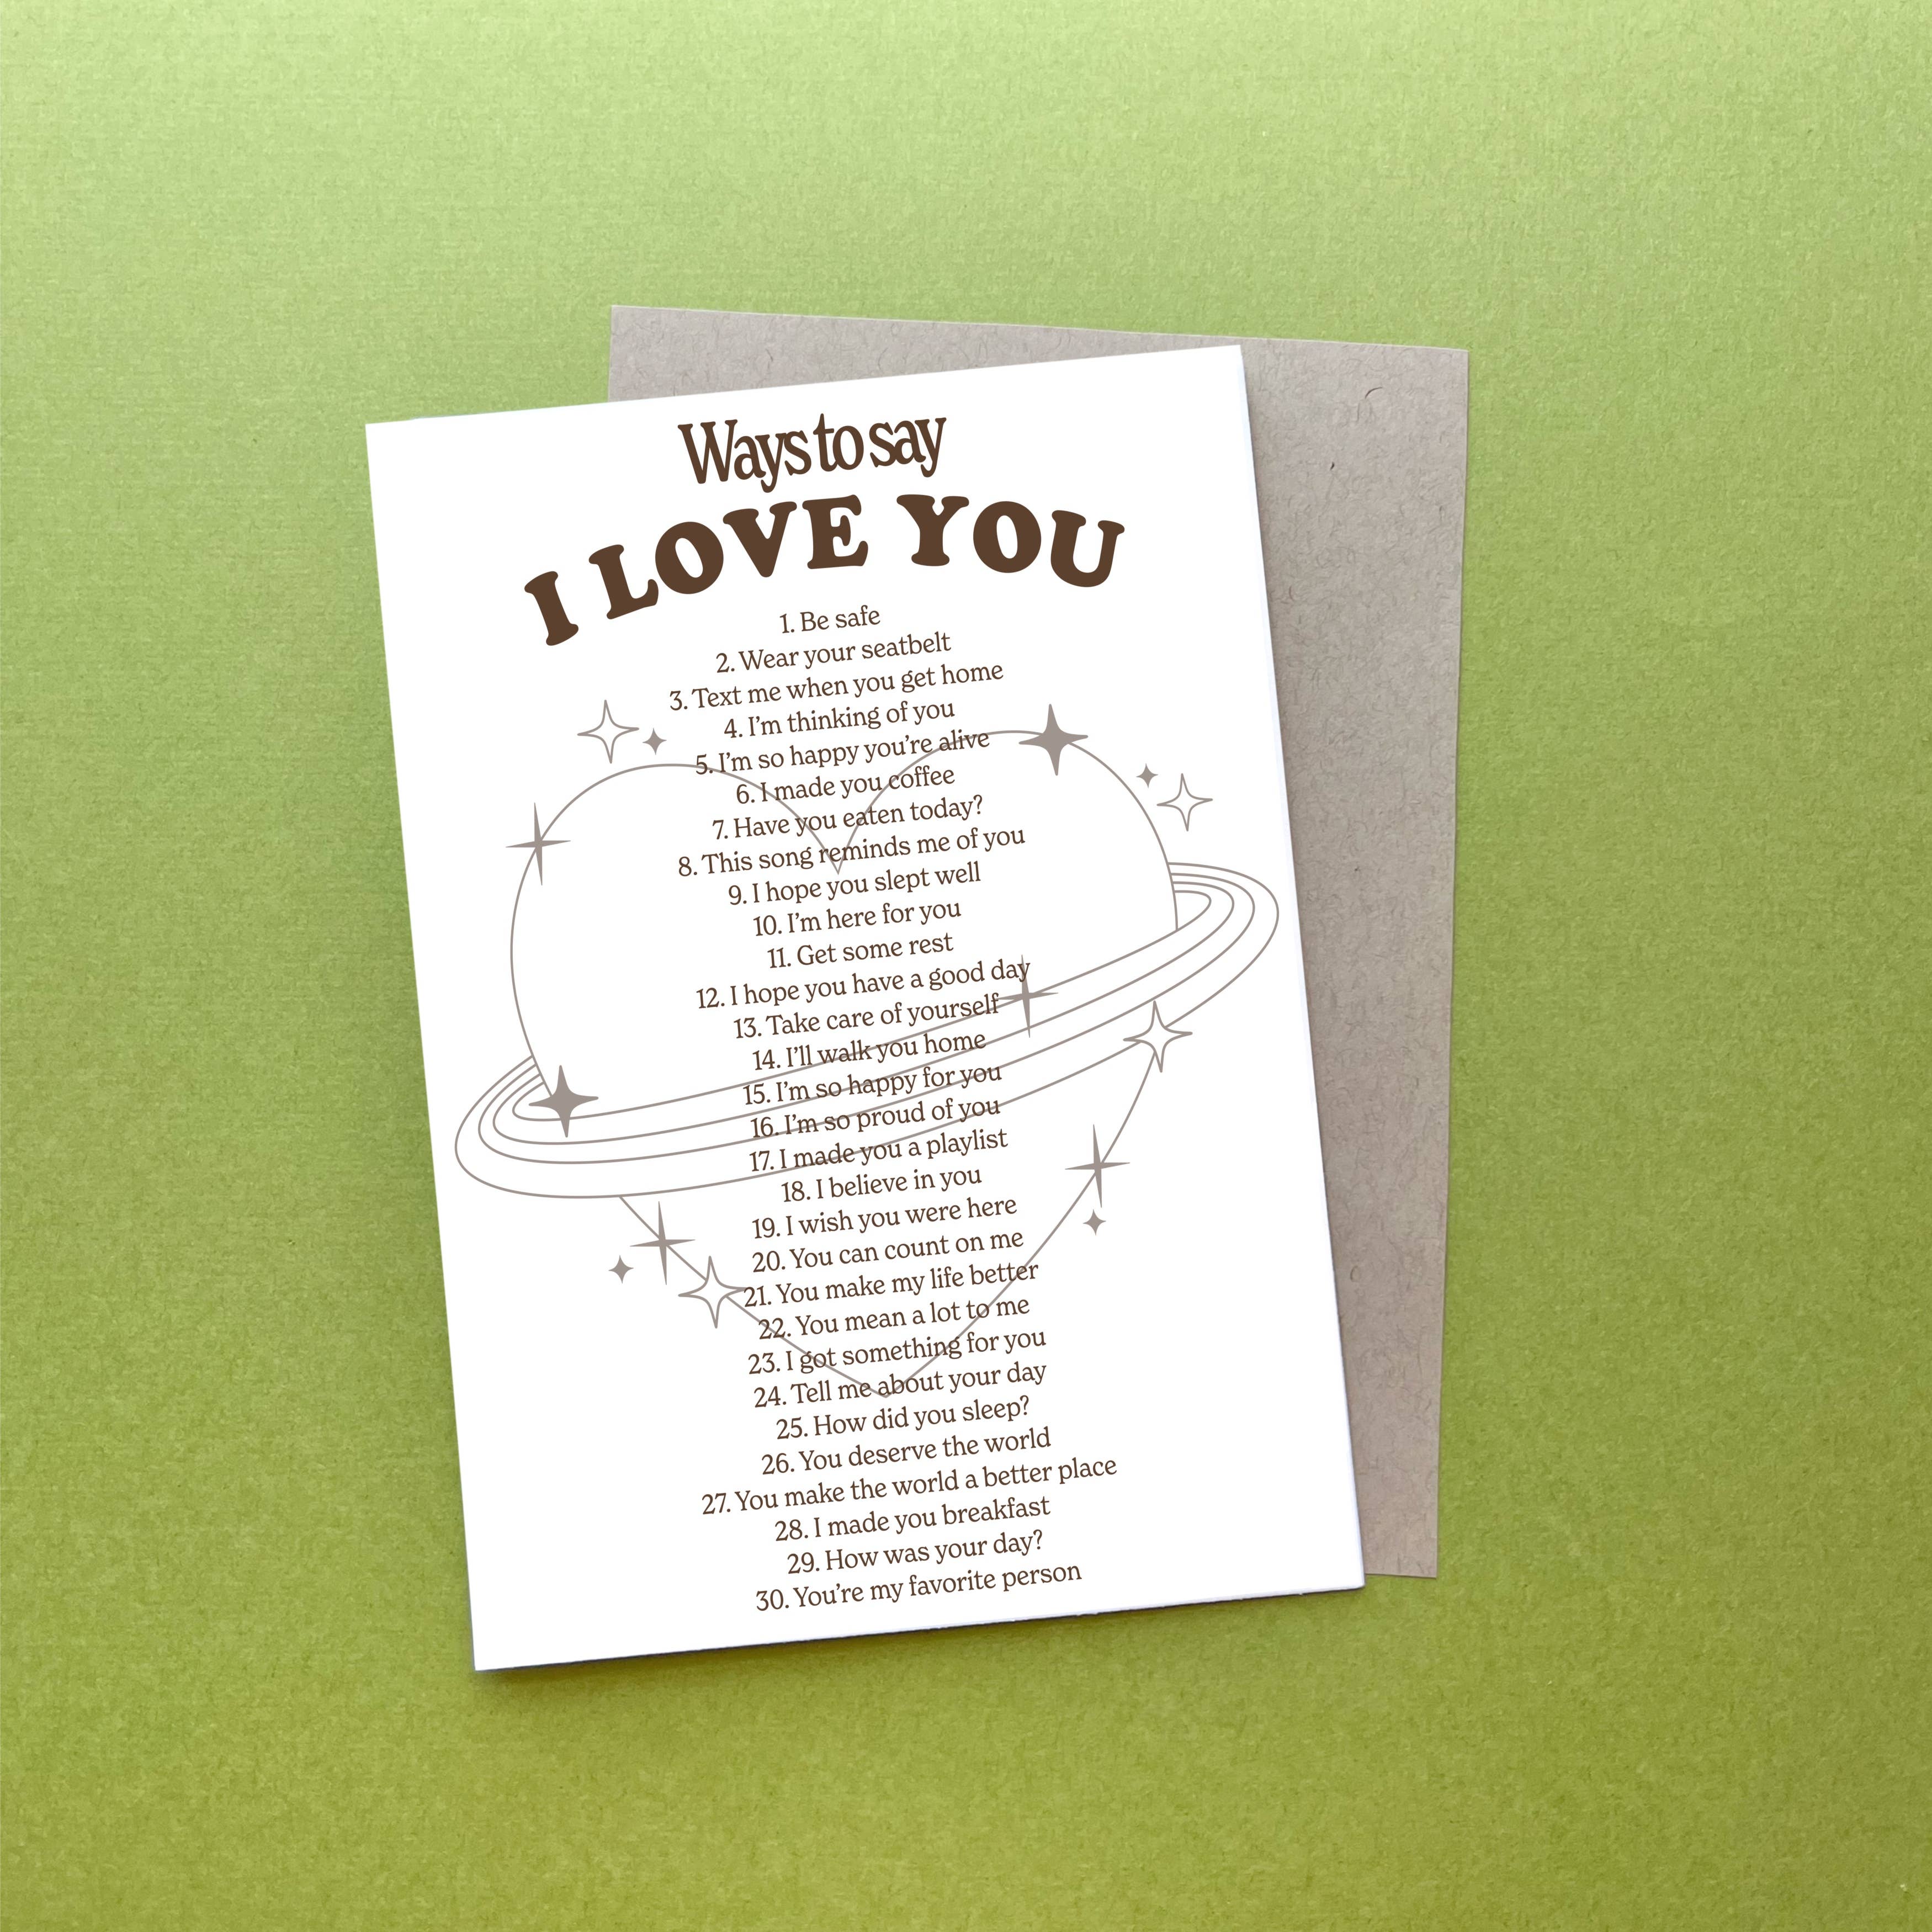 Ways to say
I LOVE YOU
1. Be safe
2. Wear your seatbelt
3. Text me when you get home
4. I'm thinking of you
5. I'm so happy you're alive
6. I made you coffee
7. Have you eaten today?
8. This song reminds me of you
9. I hope you slept well
10. I'm here for you
11. Get some rest
12. I hope you have a good day
13. Take care of yourself
14. I'll walk you home
15. I'm so happy for you
16. I'm so proud of you
17. I made you a playlist
18. I believe in you
19. I wish you were here
20. You can count on me
21. You make my life better
22. You mean a lot to me
23. I got something for you
24. Tell me about your day
25. How did you sleep?
26. You deserve the world
27. You make the world a better place
28. I made you breakfast
29. How was your day?
30. You're my favorite person